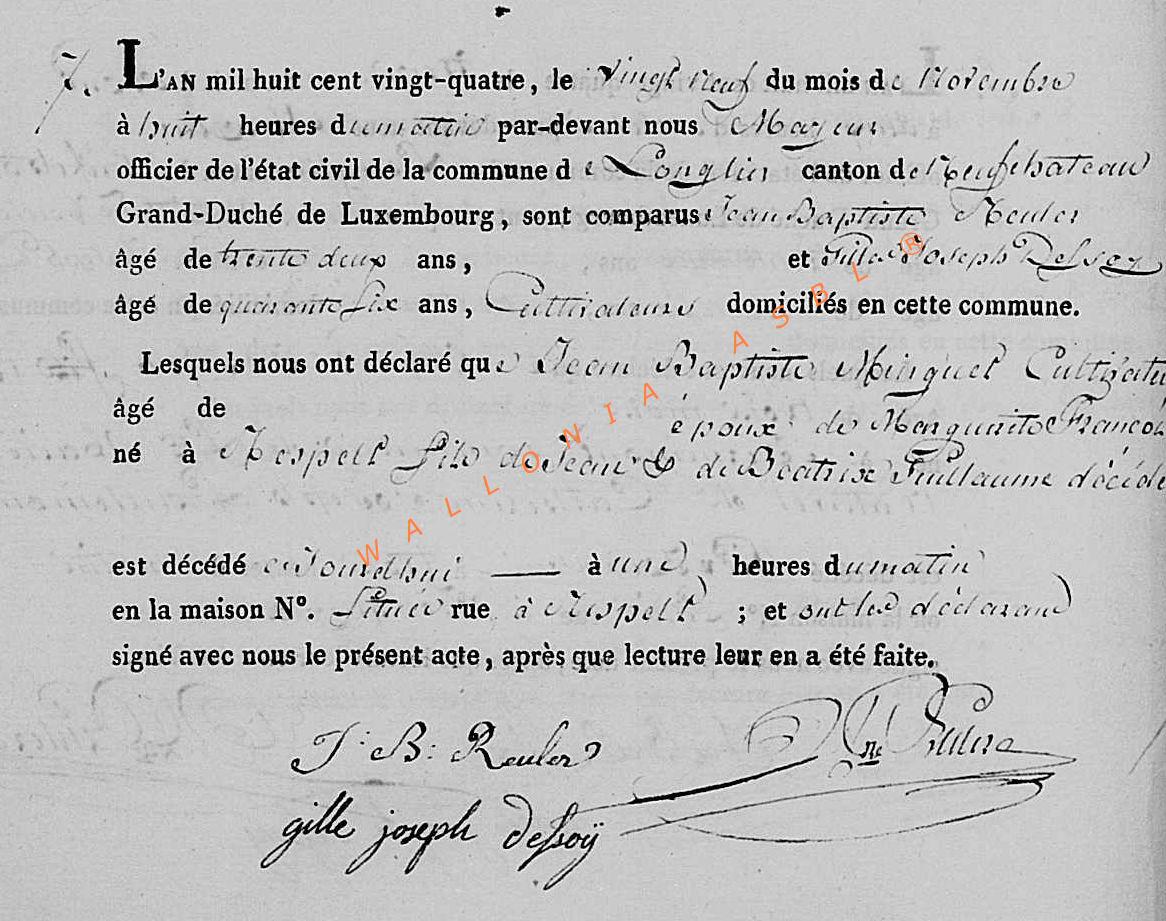 7. L'AN mil huit cent vingt-quatre, le vingt neuf du mois de Novembre
à huit heures du matin par-devant nous Mayeur
officier de l'état civil de la commune de Longlier canton de Neufchateau
Grand-Duché de Luxembourg, sont comparus Jean Baptiste Reuler
âgé de trente deux ans, et Gille Joseph Dessoy
âgé de quarante six ans, Cultivateurs domiciliés en cette commune.
Lesquels nous ont déclaré que Jean Baptiste Minguet Cultivateu
âgé de époux de Marguerite Francois
né à Respelt fils de Jean & de Beatrix Guillaume décédé
est décédé aujourdhui à une heures du matin
en la maison N°. située rue à Respelt ; et ont les déclarans
signé avec nous le présent acte, après que lecture leur en a été faite.
J: B: Reuler
gille joseph dessoÿ
WALLONIA ASBL ®